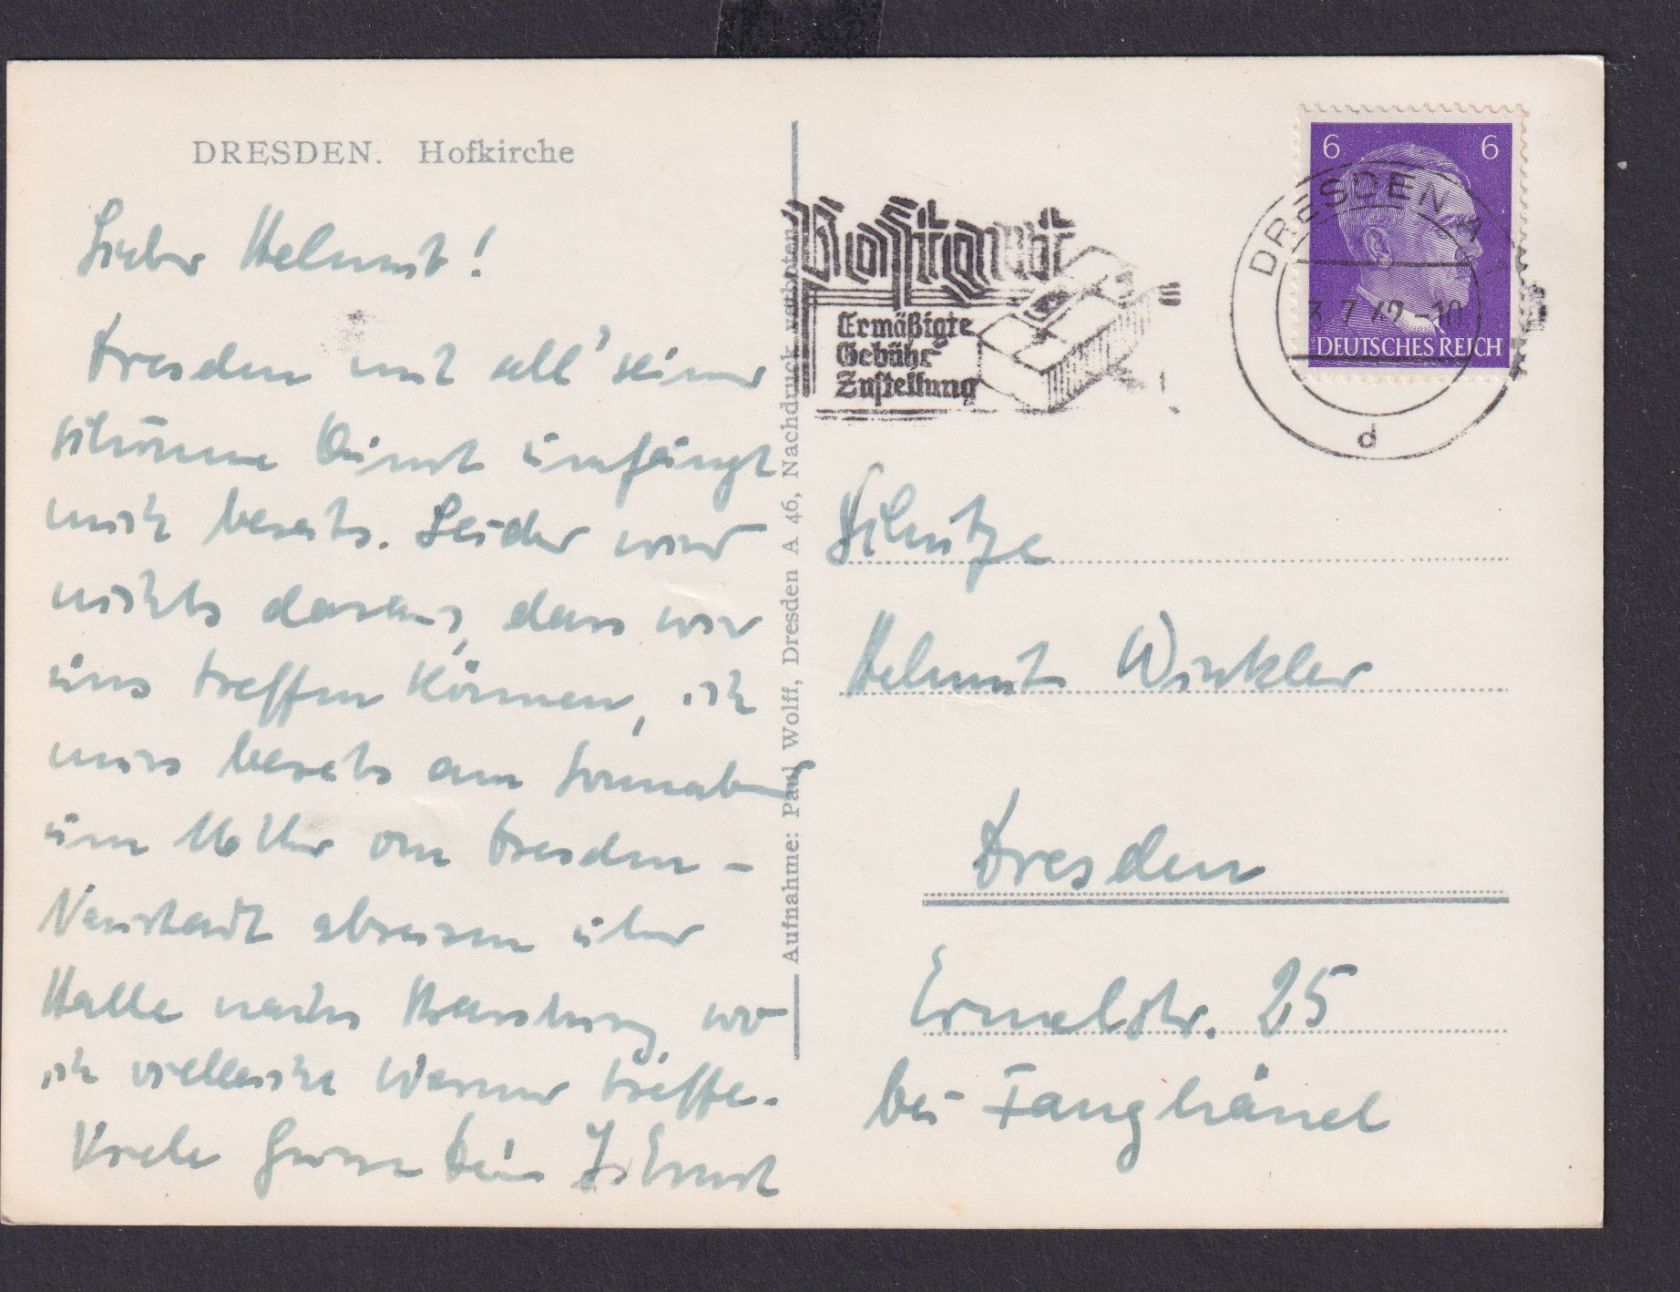 DRESDEN. Hofkirche
Lieber Helmut!
Dresden mit all' seiner
schönen Kunst umfängt
mich bereits. Leider wird
nichts daraus, dass wir
uns treffen können, ich
muss bereits am Sonnabend
um 16 Uhr von Dresden-
Neustadt abreisen über
Halle nach wo
ich vielleicht Werner treffe.
Viele Grüsse Dein Ernst
Aufnahme: Paul Wolff, Dresden A 46, Nachdruck verboten
Postgut
Ermäßigte
Gebühr
Zustellung
6 6
DEUTSCHES REICH
DRESDEN A
3.7.42-10
d
Schütze
Helmut Winkler
Dresden
Ermelstr. 25
bei Fanghänel